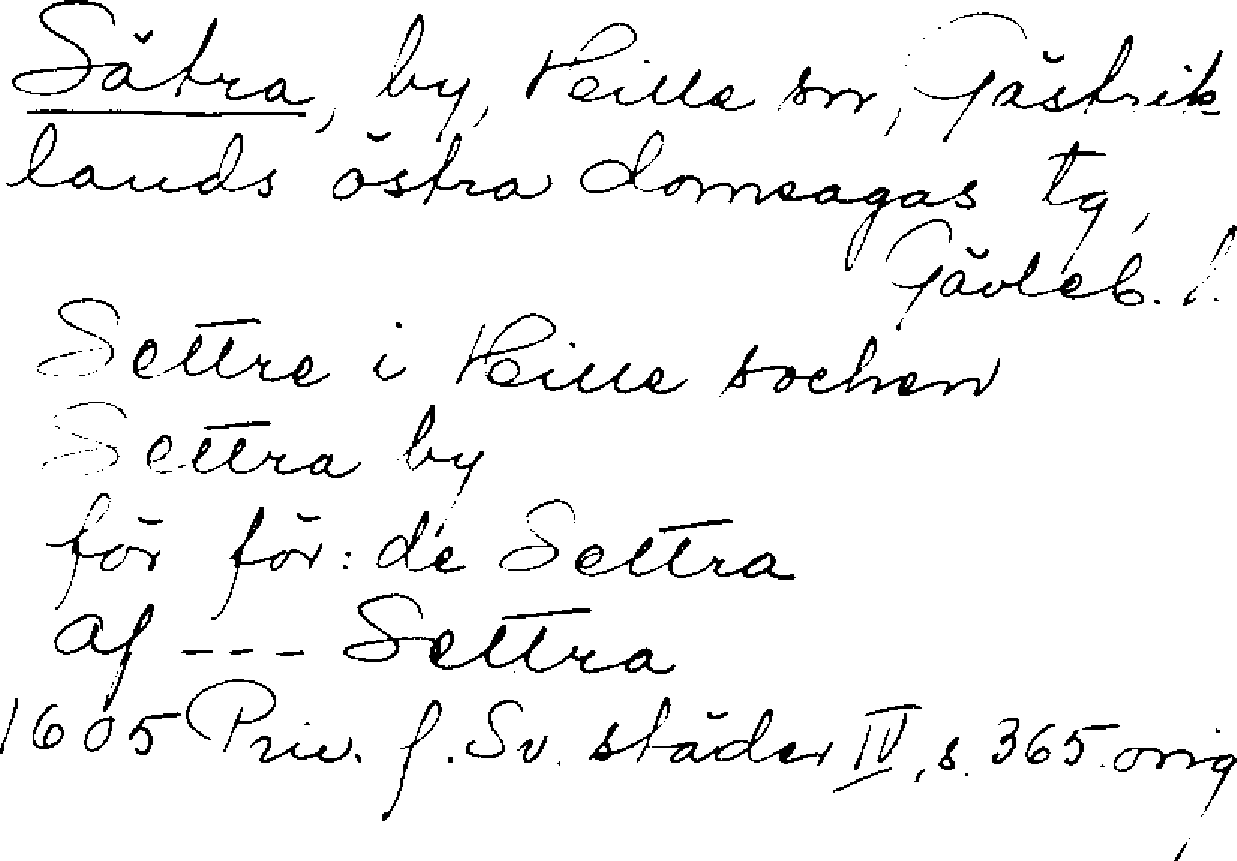 Sätra, by, Hille sn, Gästrik
lands östra domsagas tg,
Gävleb. l.
Settre i Hille sochen
Settra by
för för:de Settra
af --- Settra
1605 Priv. f. Sv. städer IV, s. 365. orig